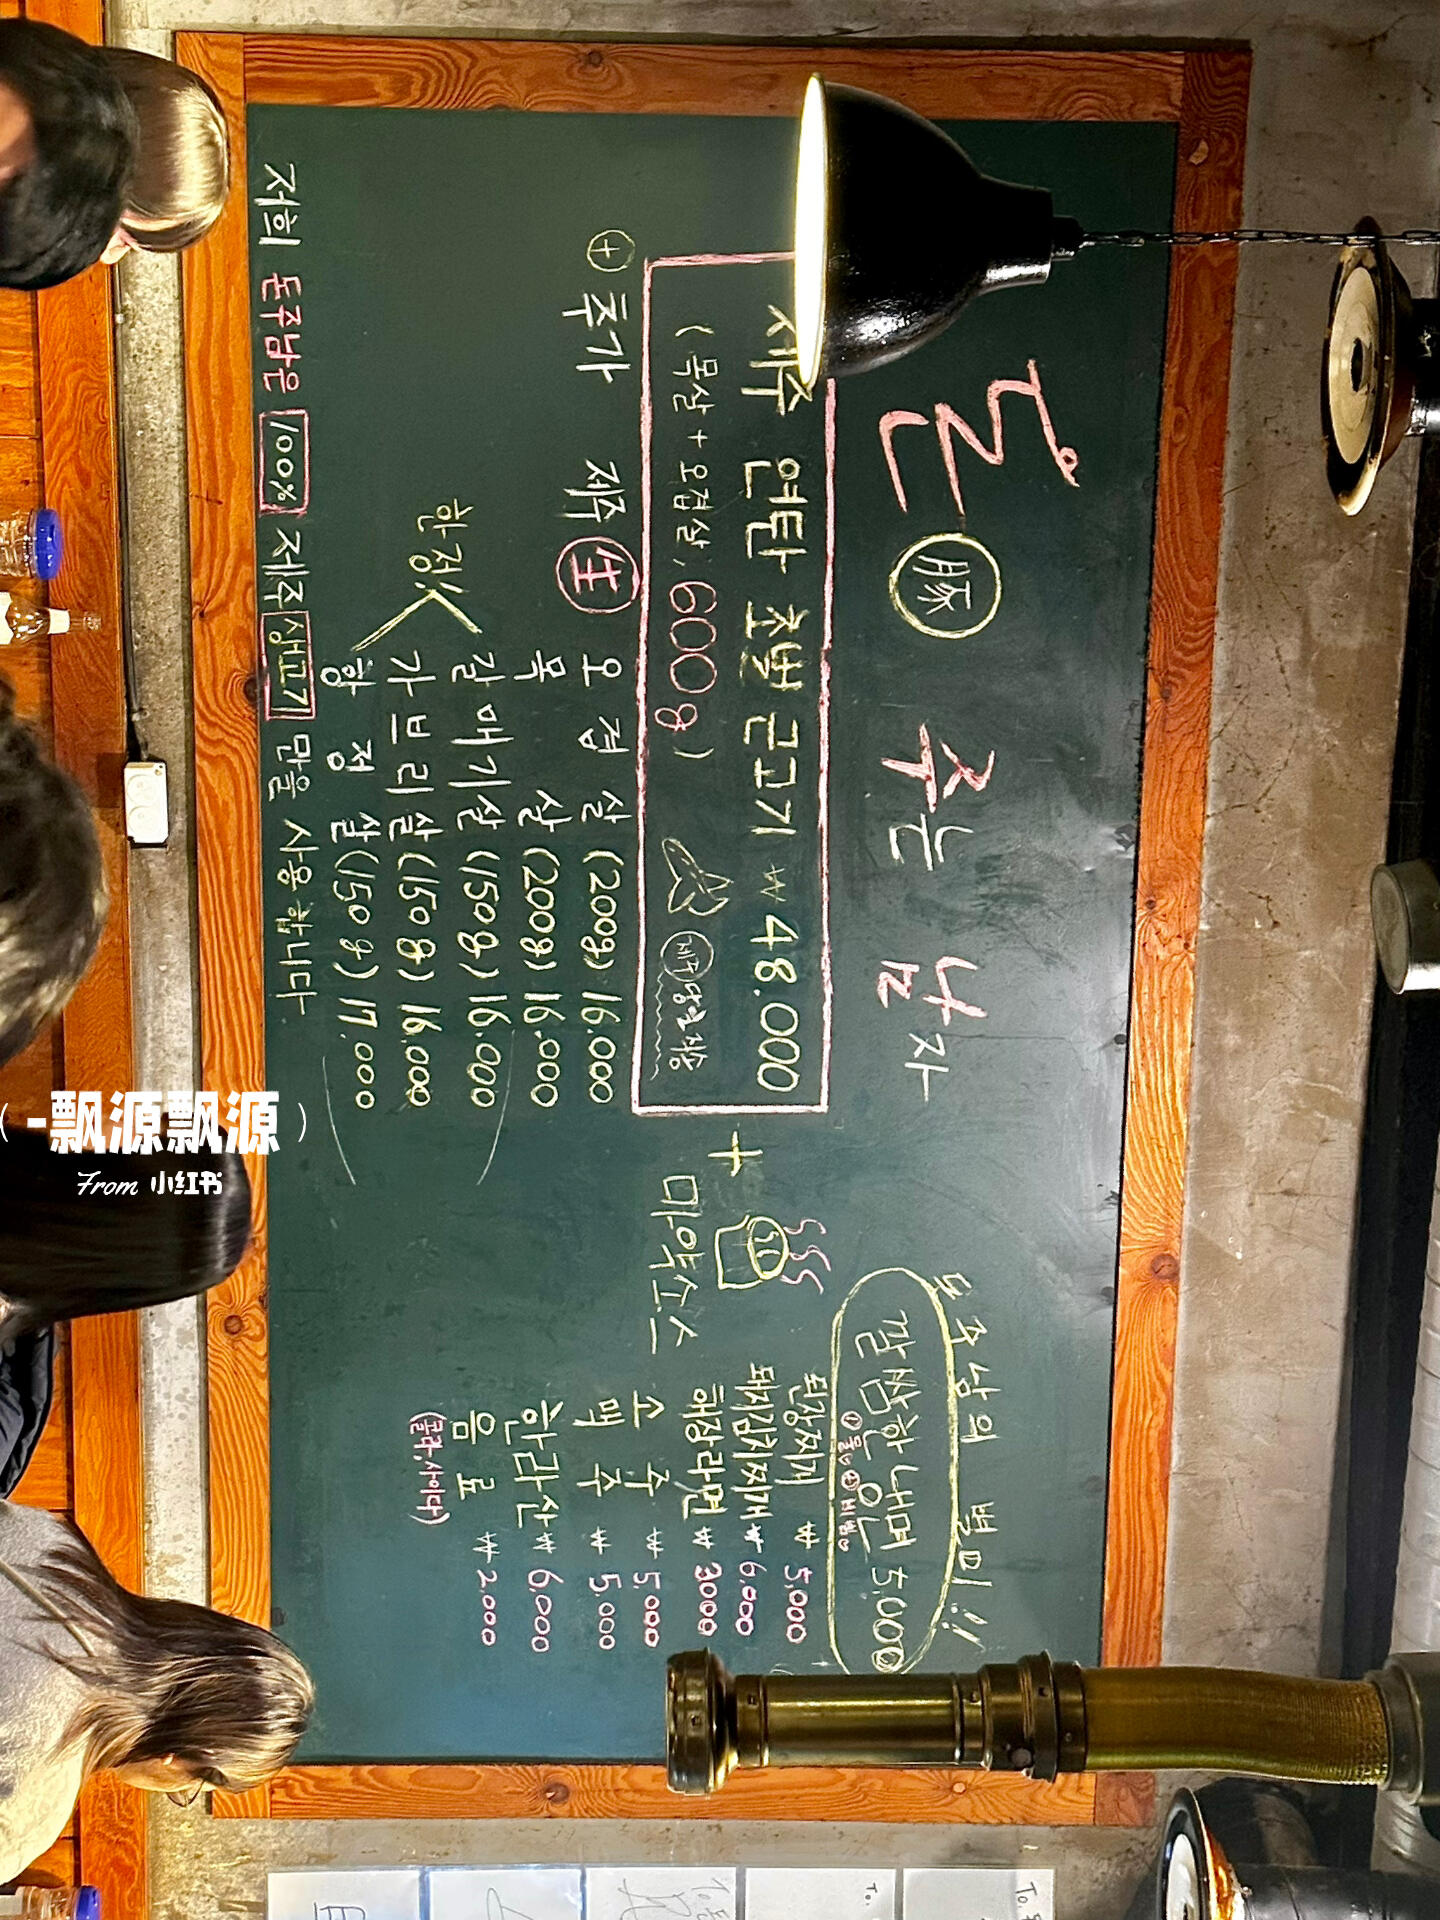 돈 豚 주는 남자
제주 연탄 초벌 근고기 ₩ 48.000
(목살 + 오겹살, 600g)
제주 당일 직송
+
마약소스
⊕ 추가 제주 生
오 겹 살 (200g) 16.000
목 살 (200g) 16.000
한정 <
갈매기살 (150g) 16.000
가브리살 (150g) 16.000
항 정 살 (150g) 17.000
저희 돈주남은 100% 제주 생고기 만을 사용합니다
돈주남의 별미!!
깔쌈한 내면 5.000
된장찌개 ₩ 5,000
돼지김치찌개 ₩ 6,000
해장라면 ₩ 3000
소 주 ₩ 5.000
맥 주 ₩ 5.000
한라산 ₩ 6.000
음 료 ₩ 2.000
(콜라,사이다)
(-飘源飘源)
From 小红书
To.